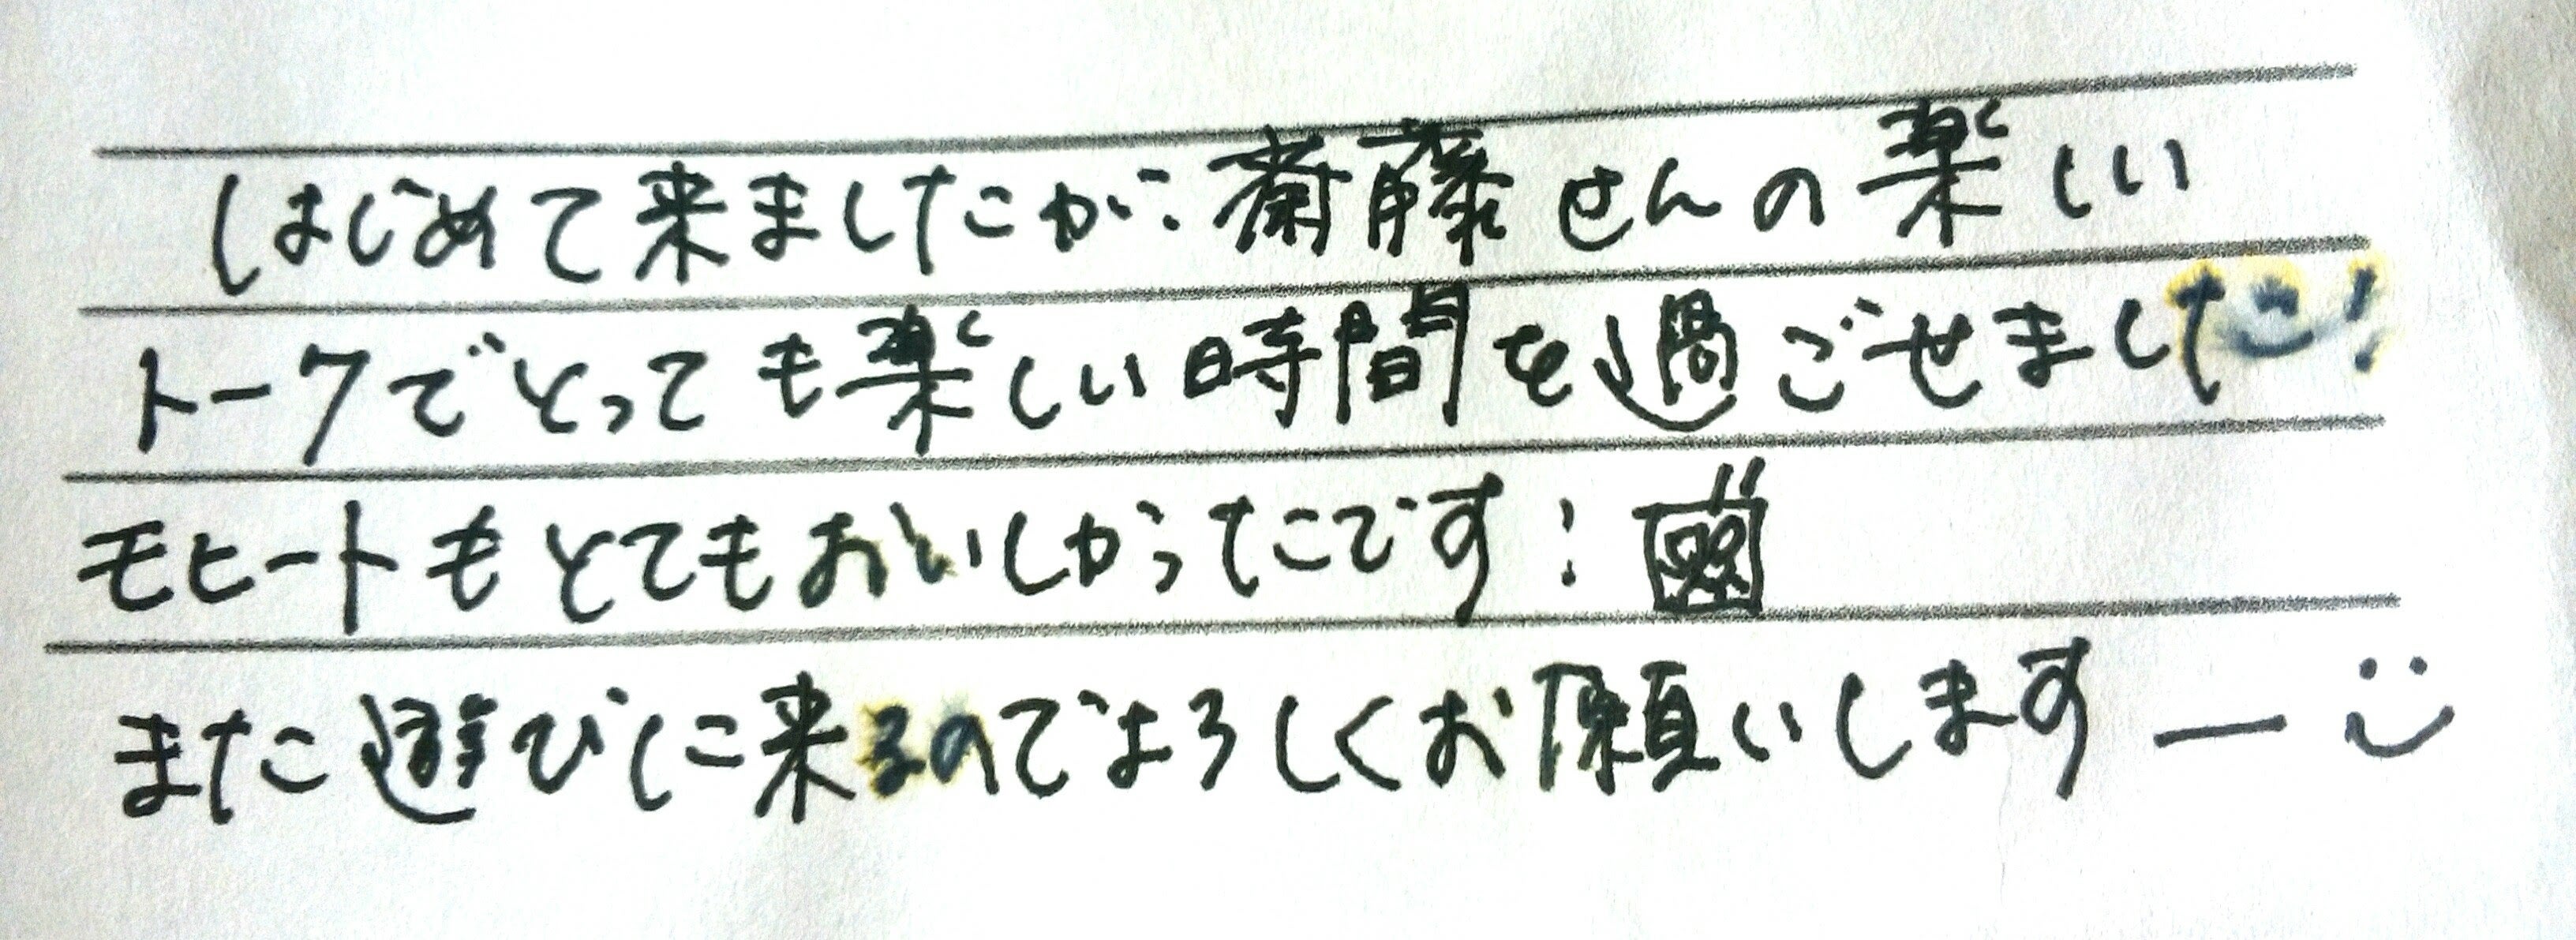 はじめて来ましたが、齋藤さんの楽しい
トークでとっても楽しい時間を過ごせました!
モヒートもとてもおいしかったです!
また遊びに来るのでよろしくお願いしますー